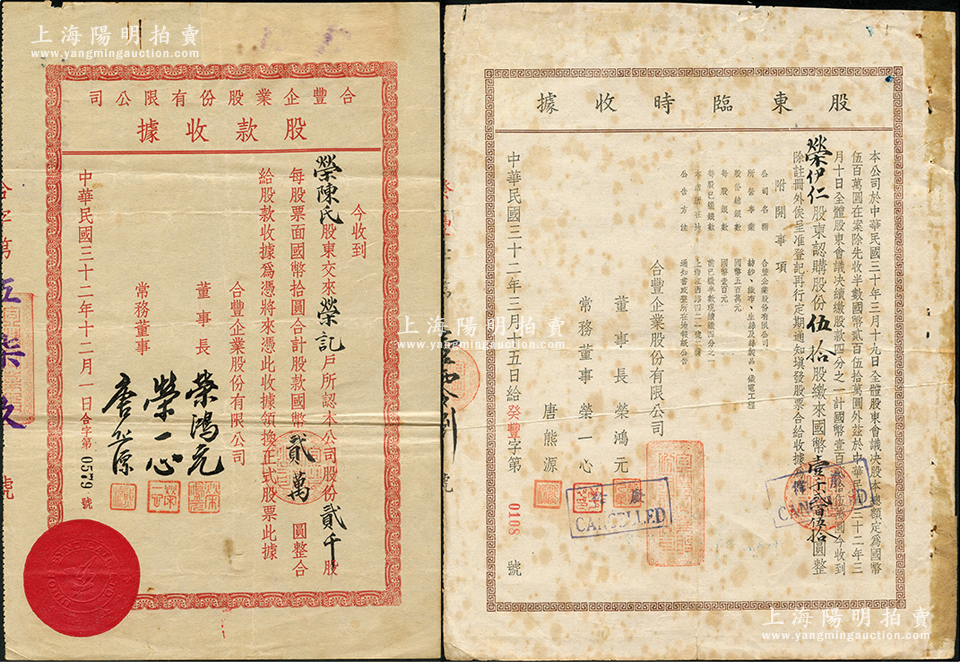 上海陽明拍賣
www.yangmingauction.com
合豐企業股份有限公司
股款收據
今收到
榮陳氏股東交來榮記戶所認本公司股份貳千股
每股票面國幣拾圓合計股款國幣貳萬圓整合
給股款收據爲憑將來憑此收據領換正式股票此據
合豐企業股份有限公司
董事長 榮鴻元
常務董事 榮一心
唐熊源
中華民國三十二年十二月一日合字第0579號
合字第
號
上海陽明拍賣
www.yangmingauction.com
股東臨時收據
本公司於中華民國三十年三月十九日全體股東會議決股本總額定爲國幣
伍百萬圓在案除先收半數國幣貳百伍拾萬圓外茲於中華民國三十二年三
月十日全體股東會議決續繳股款四分之一計國幣壹百貳拾伍萬圓今收到
榮伊仁股東認購股份伍拾股繳來國幣壹千貳百伍拾圓整
除註冊外俟呈准登記再行定期通知塡發股票合給收據爲憑
附開事項
公司名稱 合豐企業股份有限公司
股份總銀數 國幣五百萬元
每股銀數 國幣壹百元
合豐企業股份有限公司
董事長 榮鴻元
常務董事 榮一心
唐熊源
中華民國三十二年三月十五日給癸豐字第0108號
作廢
CANCELLED
上海陽明拍賣
www.yangmingauction.com
上海陽明拍賣
www.yangmingauction.com